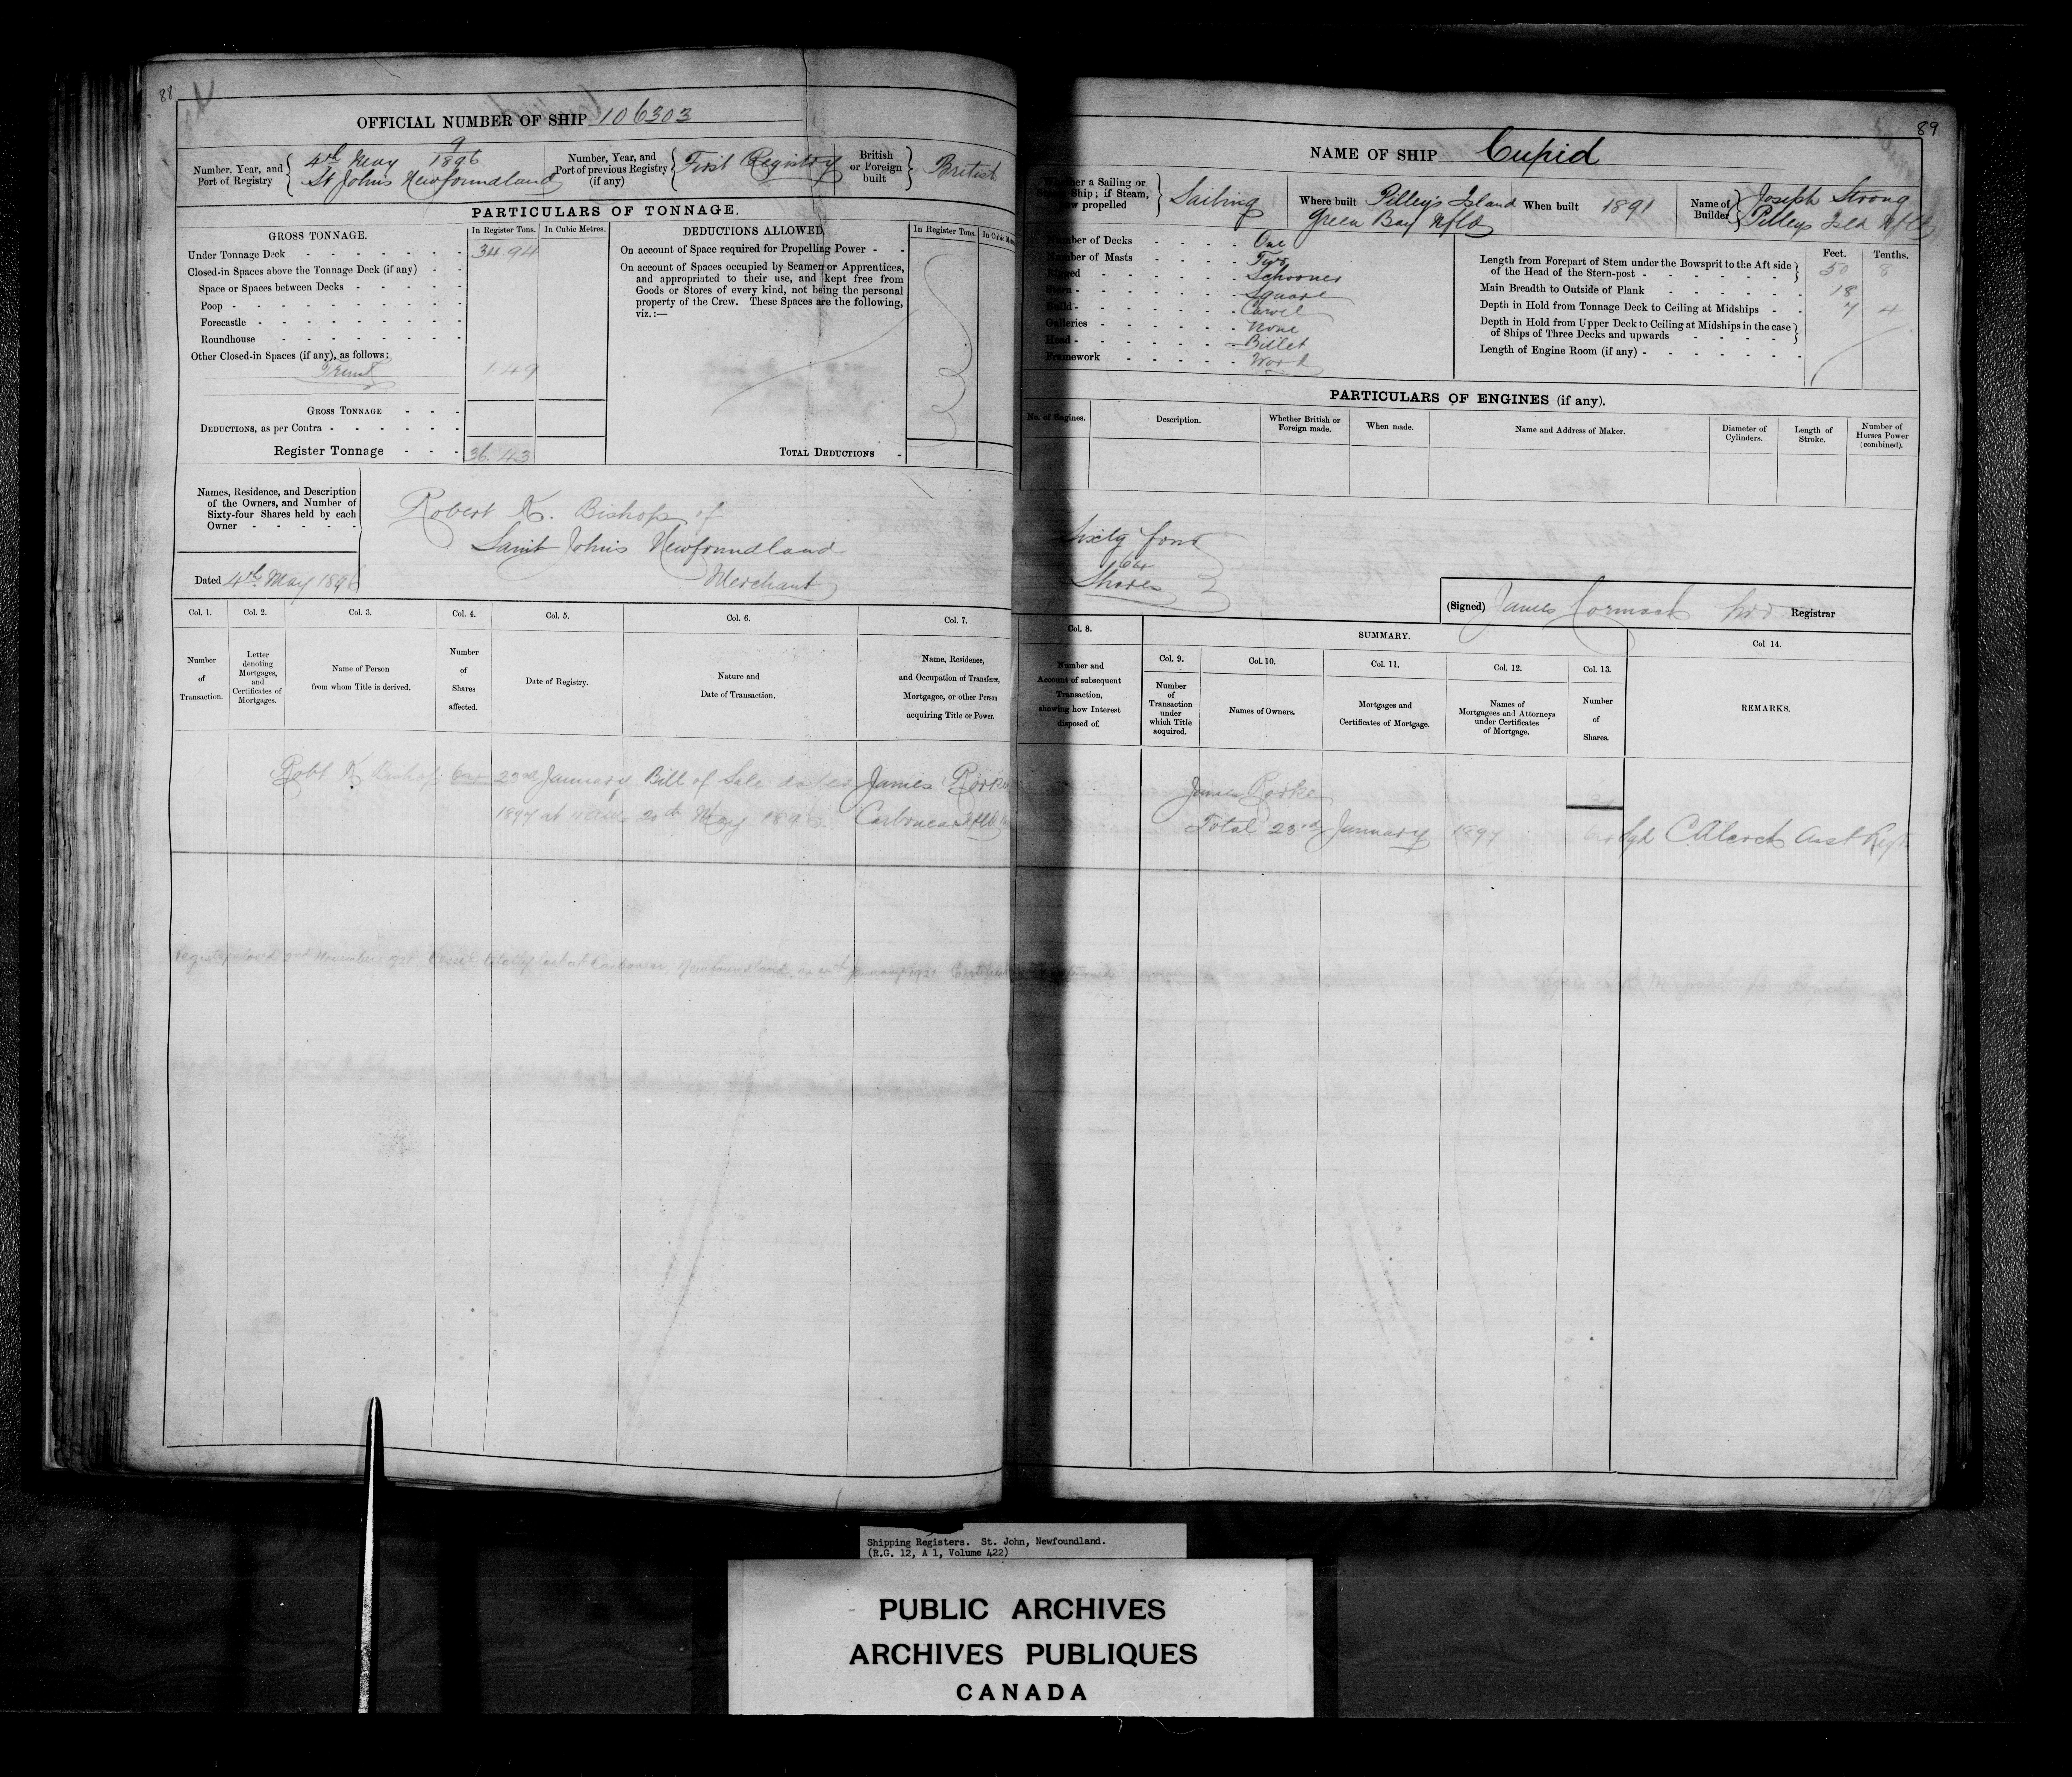 88
OFFICIAL NUMBER OF SHIP 106303
Number, Year, and Port of Registry
9
4th May 1896
St Johns Newfoundland
Number, Year, and Port of previous Registry (if any)
First Registry
British or Foreign built
British
PARTICULARS OF TONNAGE.
GROSS TONNAGE.
In Register Tons.
In Cubic Metres.
Under Tonnage Deck - - - - - - - 34.94
Closed-in Spaces above the Tonnage Deck (if any) - -
Space or Spaces between Decks - - - - -
Poop - - - - - - - - -
Forecastle - - - - - - - -
Roundhouse - - - - - - - -
Other Closed-in Spaces (if any), as follows:
1.49
GROSS TONNAGE - - -
DEDUCTIONS, as per Contra - - - - - -
Register Tonnage - - - 36.43
DEDUCTIONS ALLOWED.
In Register Tons.
On account of Space required for Propelling Power - -
On account of Spaces occupied by Seamen or Apprentices,
and appropriated to their use, and kept free from
Goods or Stores of every kind, not being the personal
property of the Crew. These Spaces are the following,
viz.:—
TOTAL DEDUCTIONS -
Names, Residence, and Description
of the Owners, and Number of
Sixty-four Shares held by each
Owner - - - - -
Dated 4th May 1896
Robert K. Bishop of
Saint Johns Newfoundland
Merchant
Col. 1.
Number of Transaction.
Col. 2.
Letter denoting Mortgages, and Certificates of Mortgages.
Col. 3.
Name of Person from whom Title is derived.
Col. 4.
Number of Shares affected.
Col. 5.
Date of Registry.
Col. 6.
Nature and Date of Transaction.
Col. 7.
Name, Residence, and Occupation of Transferee, Mortgagee, or other Person acquiring Title or Power.
Robt K Bishop 64 23rd January Bill of Sale dated James Rorke
1897 at 11 20th May 189 Carbonear Nfld
Register closed 2nd November Vessel totally lost at Carbonear, Newfoundland, on January 1921 Certificate
89
NAME OF SHIP Cupid
Whether a Sailing or Steam Ship; if Steam, how propelled
Sailing
Where built Pilley's Island
Green Bay Nfld
When built 1891
Name of Builder
Joseph Strong
Pilleys Isld Nfld
Number of Decks - - - - One
Number of Masts - - - - Two
Rigged - - - - - - Schooner
Stern - - - - - - - Square
Build - - - - - - - Carvel
Galleries - - - - - - None
Head - - - - - - - Billet
Framework - - - - - Wood
Feet. Tenths.
Length from Forepart of Stem under the Bowsprit to the Aft side of the Head of the Stern-post - - - - - - 50 8
Main Breadth to Outside of Plank - - - - - - 18
Depth in Hold from Tonnage Deck to Ceiling at Midships - - 7 4
Depth in Hold from Upper Deck to Ceiling at Midships in the case of Ships of Three Decks and upwards - - - -
Length of Engine Room (if any) - - - - - - -
PARTICULARS OF ENGINES (if any).
No. of Engines.
Description.
Whether British or Foreign made.
When made.
Name and Address of Maker.
Diameter of Cylinders.
Length of Stroke.
Number of Horses Power (combined).
Sixty four
64
Shares
(Signed) James Cormack Registrar
Col. 8.
Number and Account of subsequent Transaction, showing how Interest disposed of.
SUMMARY.
Col. 9.
Number of Transaction under which Title acquired.
Col. 10.
Names of Owners.
Col. 11.
Mortgages and Certificates of Mortgage.
Col. 12.
Names of Mortgagees and Attorneys under Certificates of Mortgage.
Col. 13.
Number of Shares.
Col 14.
REMARKS.
James Rorke
Total 23rd January 1897 64 Asst Regr
Shipping Registers. St. John, Newfoundland.
(R.G. 12, A 1, Volume 422)
PUBLIC ARCHIVES
ARCHIVES PUBLIQUES
CANADA